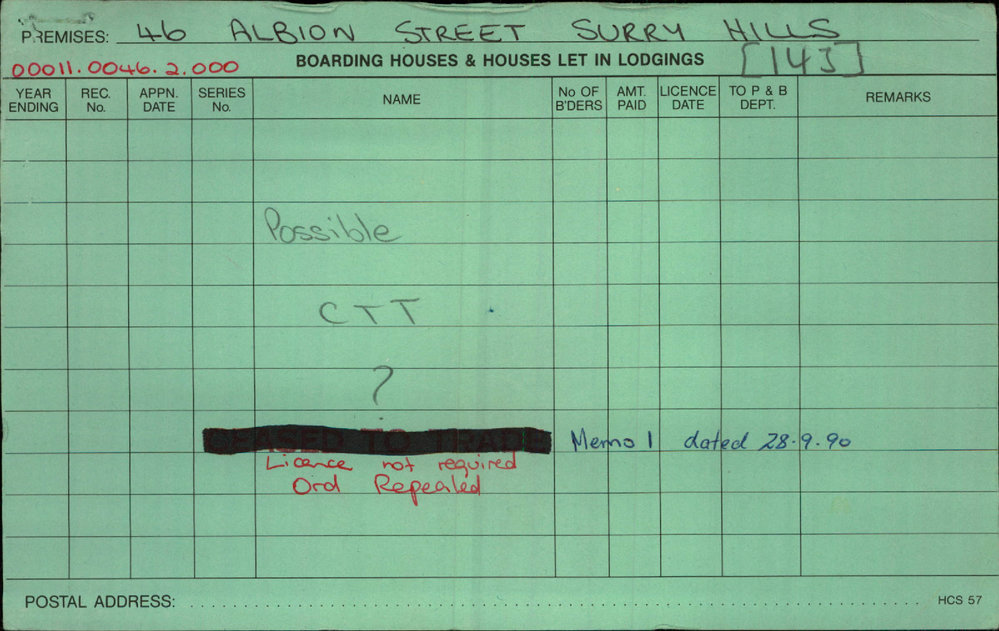 PREMISES: 46 ALBION STREET SURRY HILLS
00011.0046.2.000 BOARDING HOUSES & HOUSES LET IN LODGINGS [143]
YEAR ENDING REC. No. APPN. DATE SERIES No. NAME No OF B'DERS AMT. PAID LICENCE DATE TO P & B DEPT. REMARKS
Possible
CTT
?
CEASED TO TRADE Memo 1 dated 28.9.90
Licence not required
Ord Repealed
POSTAL ADDRESS: HCS 57